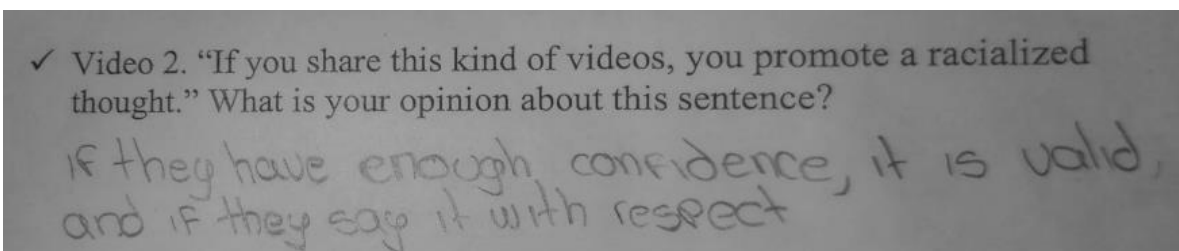 ✓ Video 2. “If you share this kind of videos, you promote a racialized
thought.” What is your opinion about this sentence?
IF they have enough confidence, it is valid,
and if they say it with respect